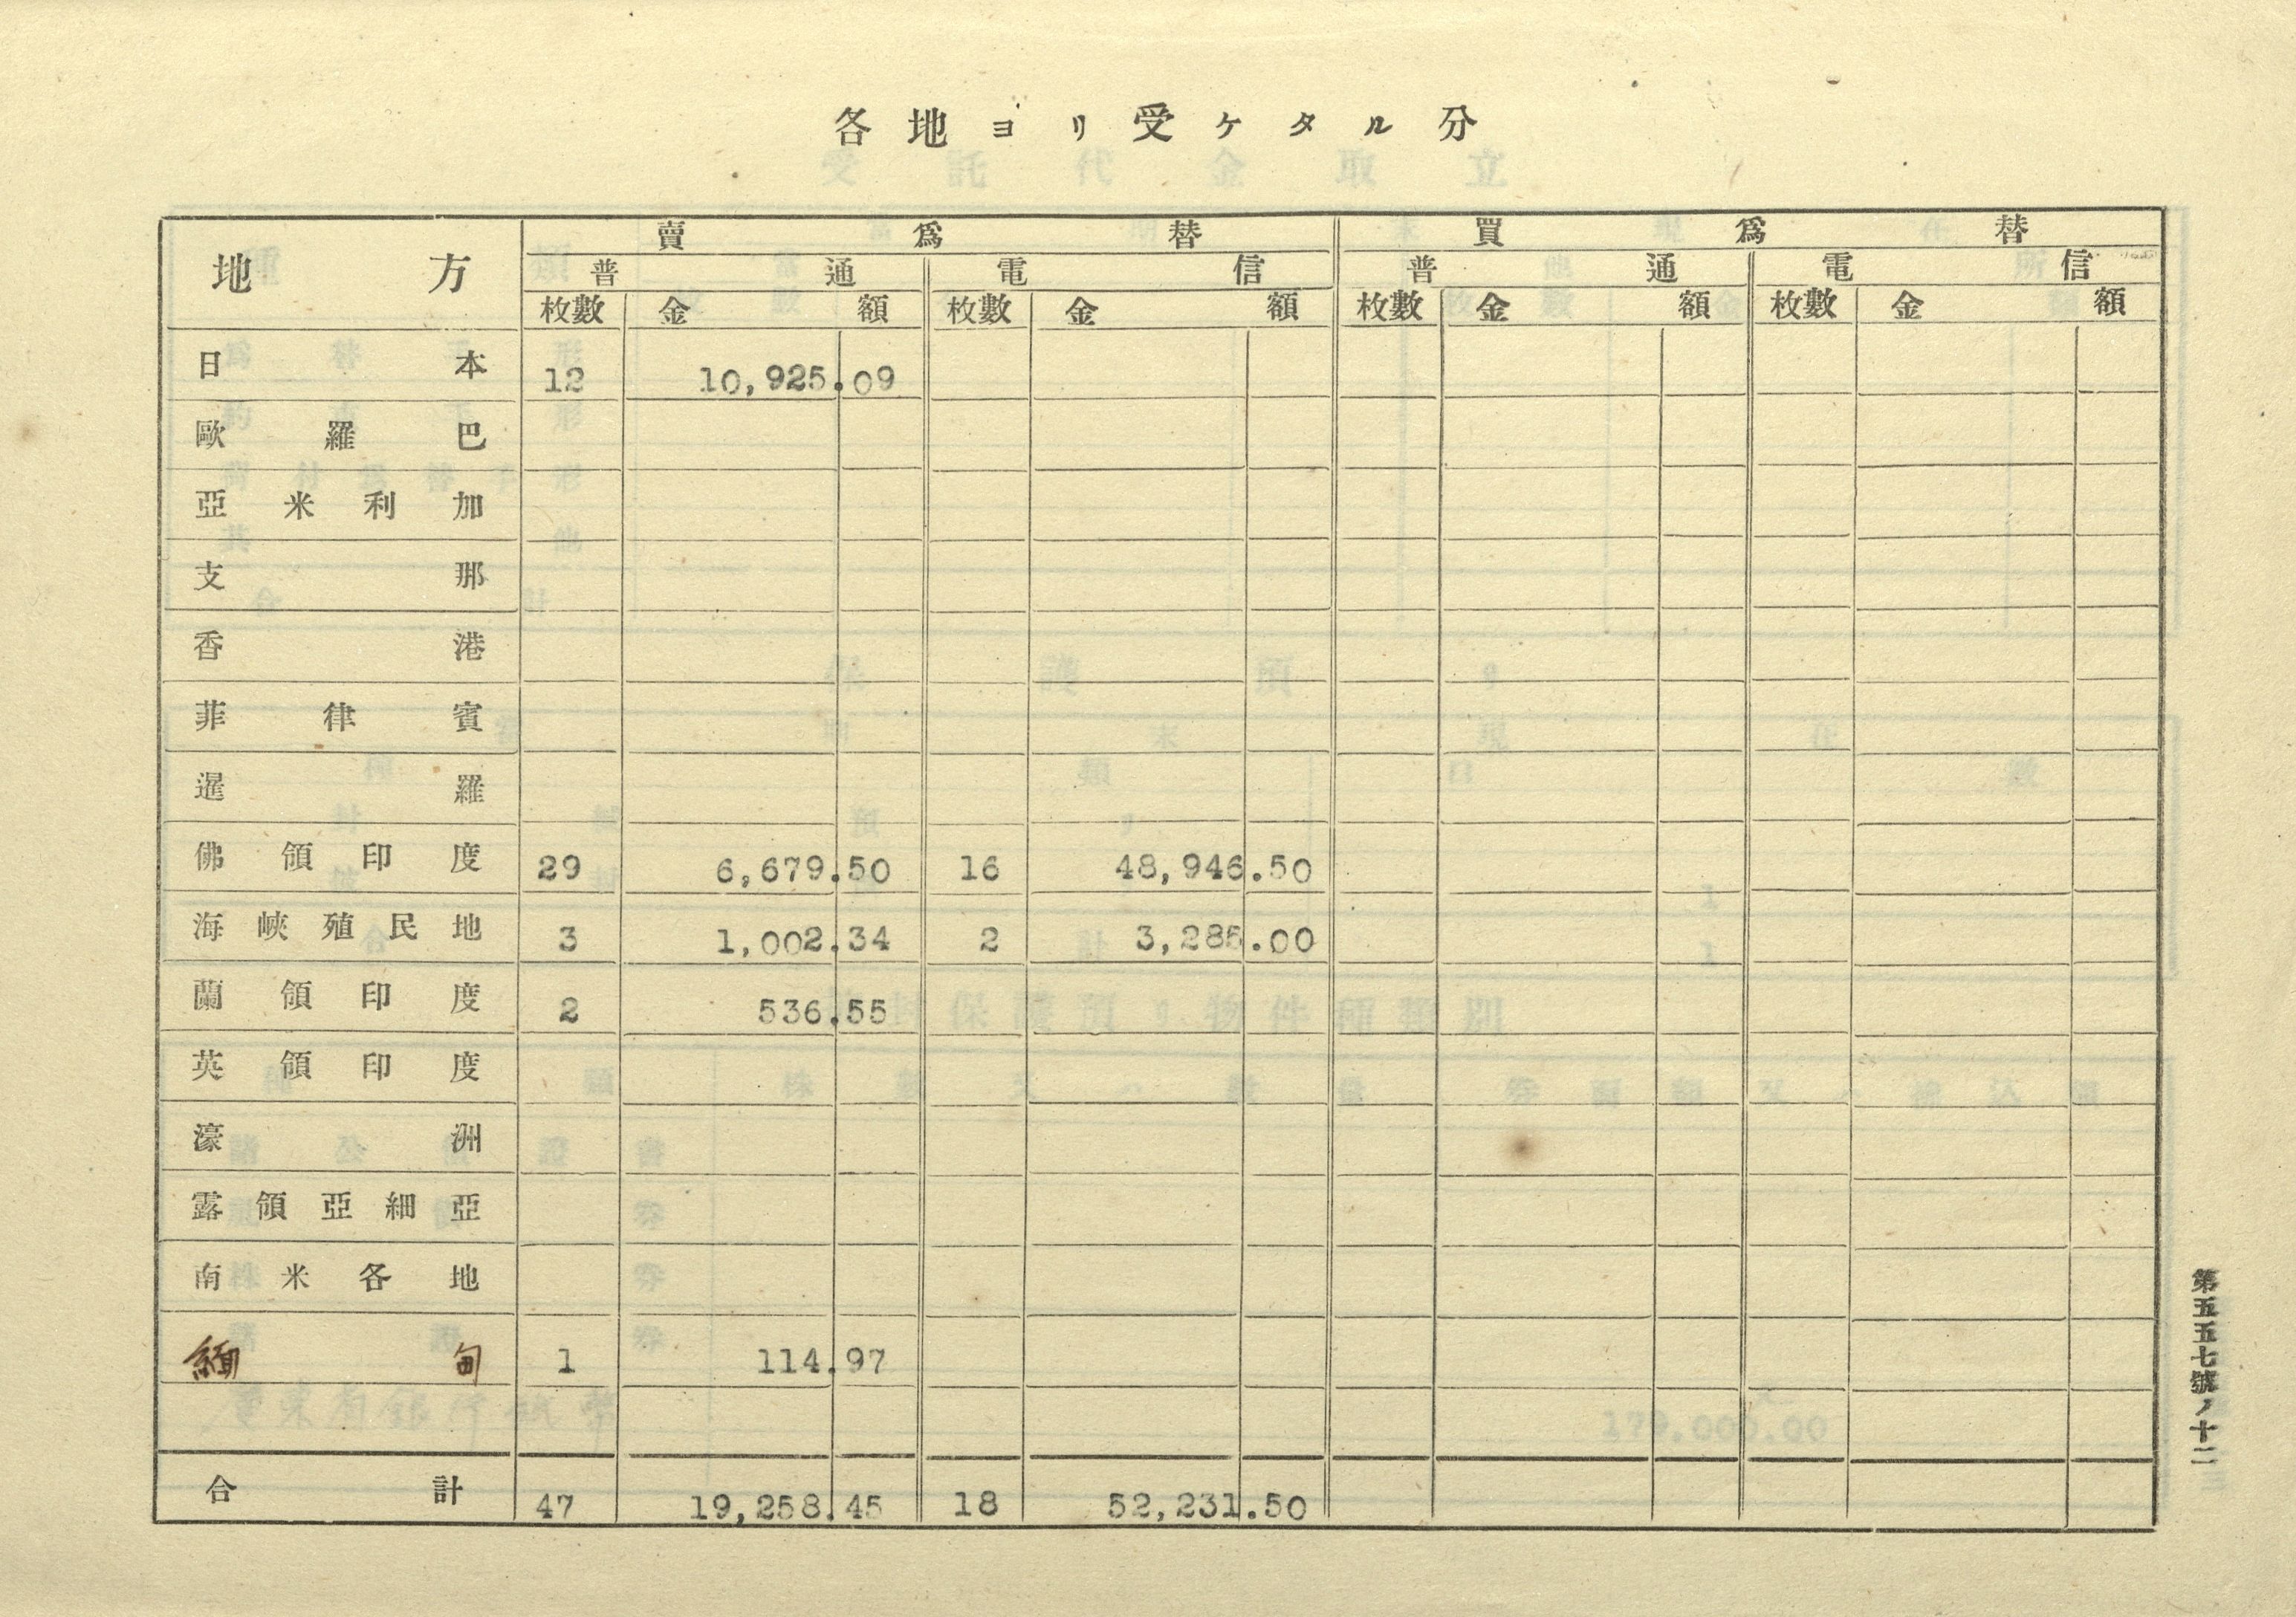 各地ヨリ受ケタル分
地方 賣爲替 買爲替
普通 電信 普通 電信
枚數 金額 枚數 金額 枚數 金額 枚數 金額
日本 12 10,925.09
歐羅巴
亞米利加
支那
香港
菲律賓
暹羅
佛領印度 29 6,679.50 16 48,946.50
海峽殖民地 3 1,002.34 2 3,285.00
蘭領印度 2 536.55
英領印度
濠洲
露領亞細亞
南米各地
緬甸 1 114.97
合計 47 19,258.45 18 52,231.50
第五五七號ノ十二